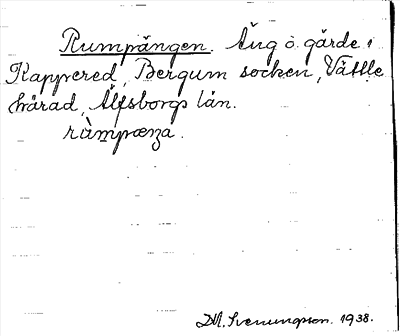 Rumpängen. Äng o. gärde i
Kappered, Bergum socken, Vättle
härad, Älfsborgs län.
ràmpæŋa.
D.M. Svenungsson. 1938.